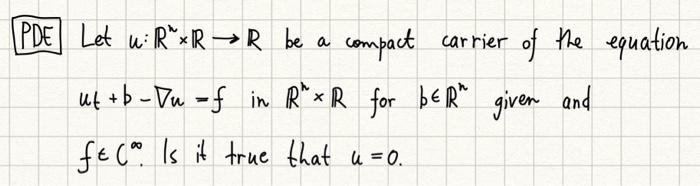 PDE Let u: ℝⁿ×ℝ → ℝ be a compact carrier of the equation
ut + b - ∇u = f in ℝⁿ×ℝ for b∈ℝⁿ given and
f∈C^∞. Is it true that u = 0.